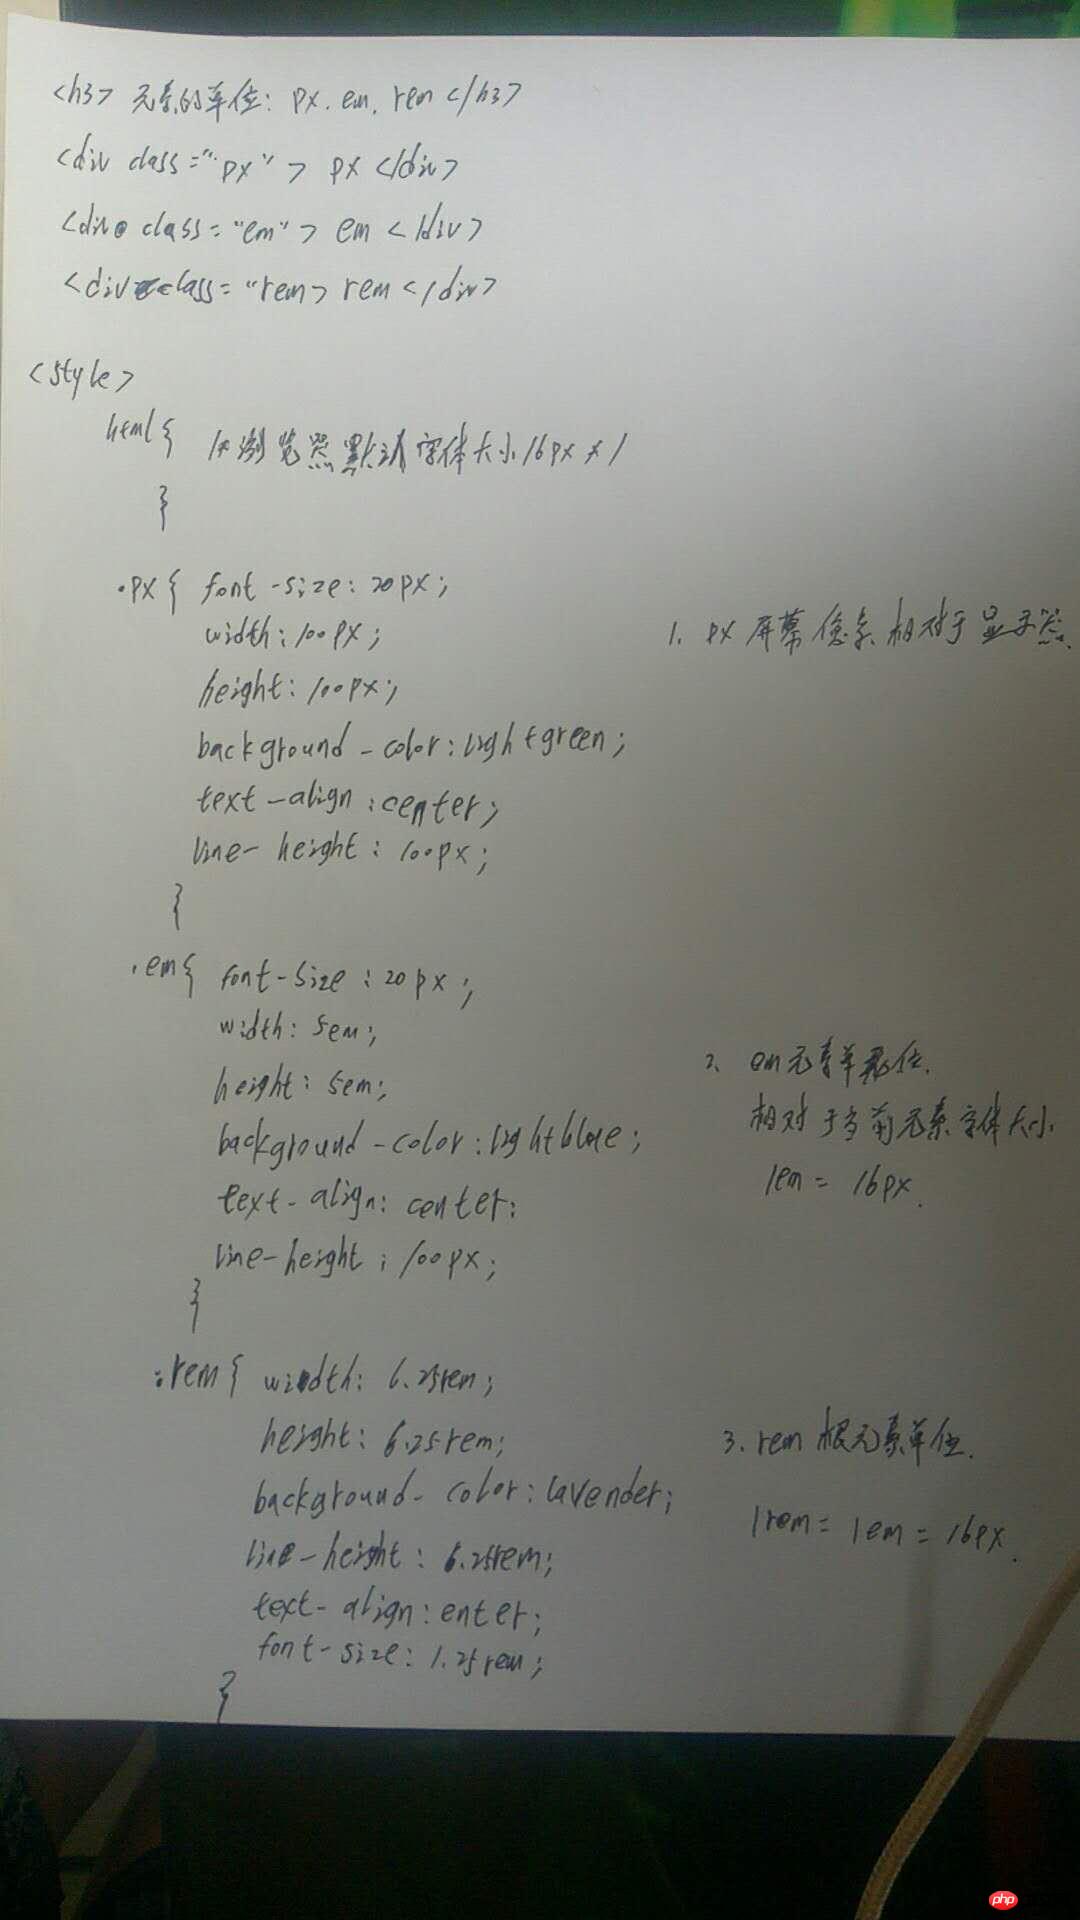 <h3> 元素的单位: px. em. rem </h3>
<div class="px"> px </div>
<div class="em"> em </div>
<div class="rem> rem </div>
<style>
html{ /*浏览器默认字体大小16px*/
}
.px{ font-size: 20px;
width: 100px;
1. px 屏幕像素 相对于显示器.
height: 100px;
background-color: lightgreen;
text-align: center;
line-height: 100px;
}
.em{ font-size: 20px;
width: 5em;
height: 5em;
2、 em元素单位.
background-color: lightblue;
相对于当前元素字体大小
text-align: center:
1em = 16px.
line-height: 100px;
}
.rem{ width: 6.25rem;
height: 6.25rem;
3. rem 根元素单位.
background-color: lavender;
1rem = 1em = 16px.
line-height: 6.25rem;
text-align: enter;
font-size: 1.25rem;
}
php